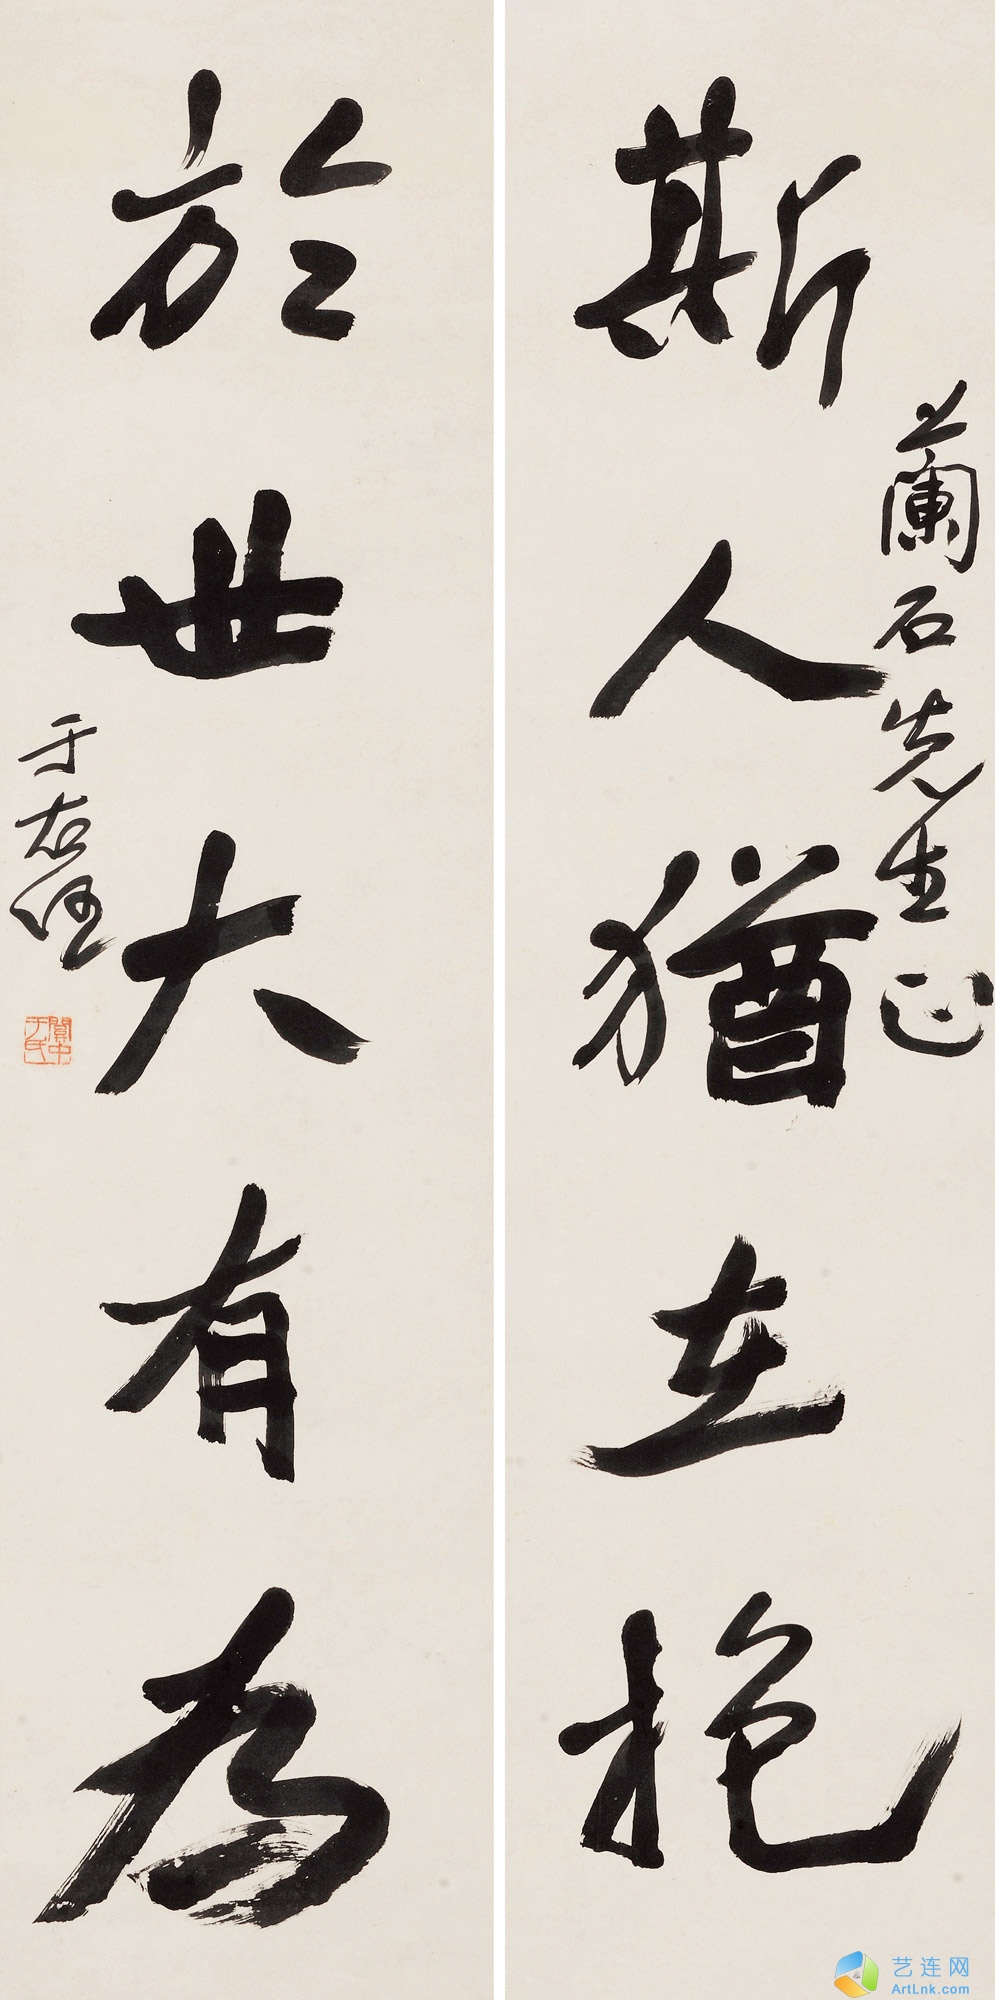 蘭石先生正
斯人猶在抱
於世大有為
于右任
關中于氏
艺连网
ArtLnk.com